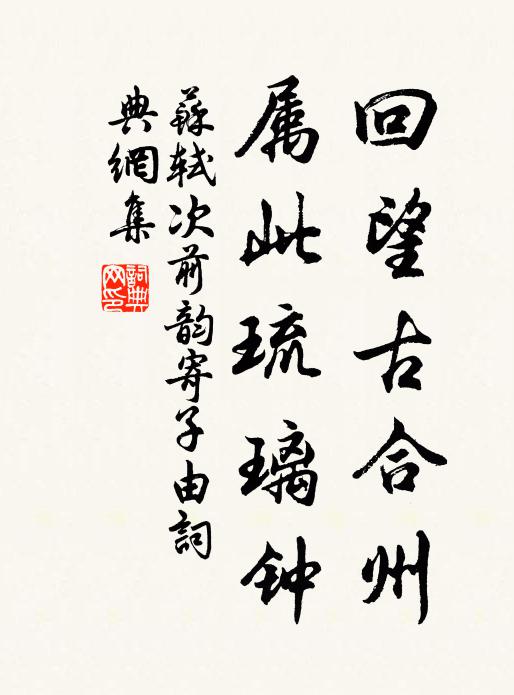 回望古合州
属此琉璃钟
蘇轼次前韵寄子由詞
典網集
詞典网印